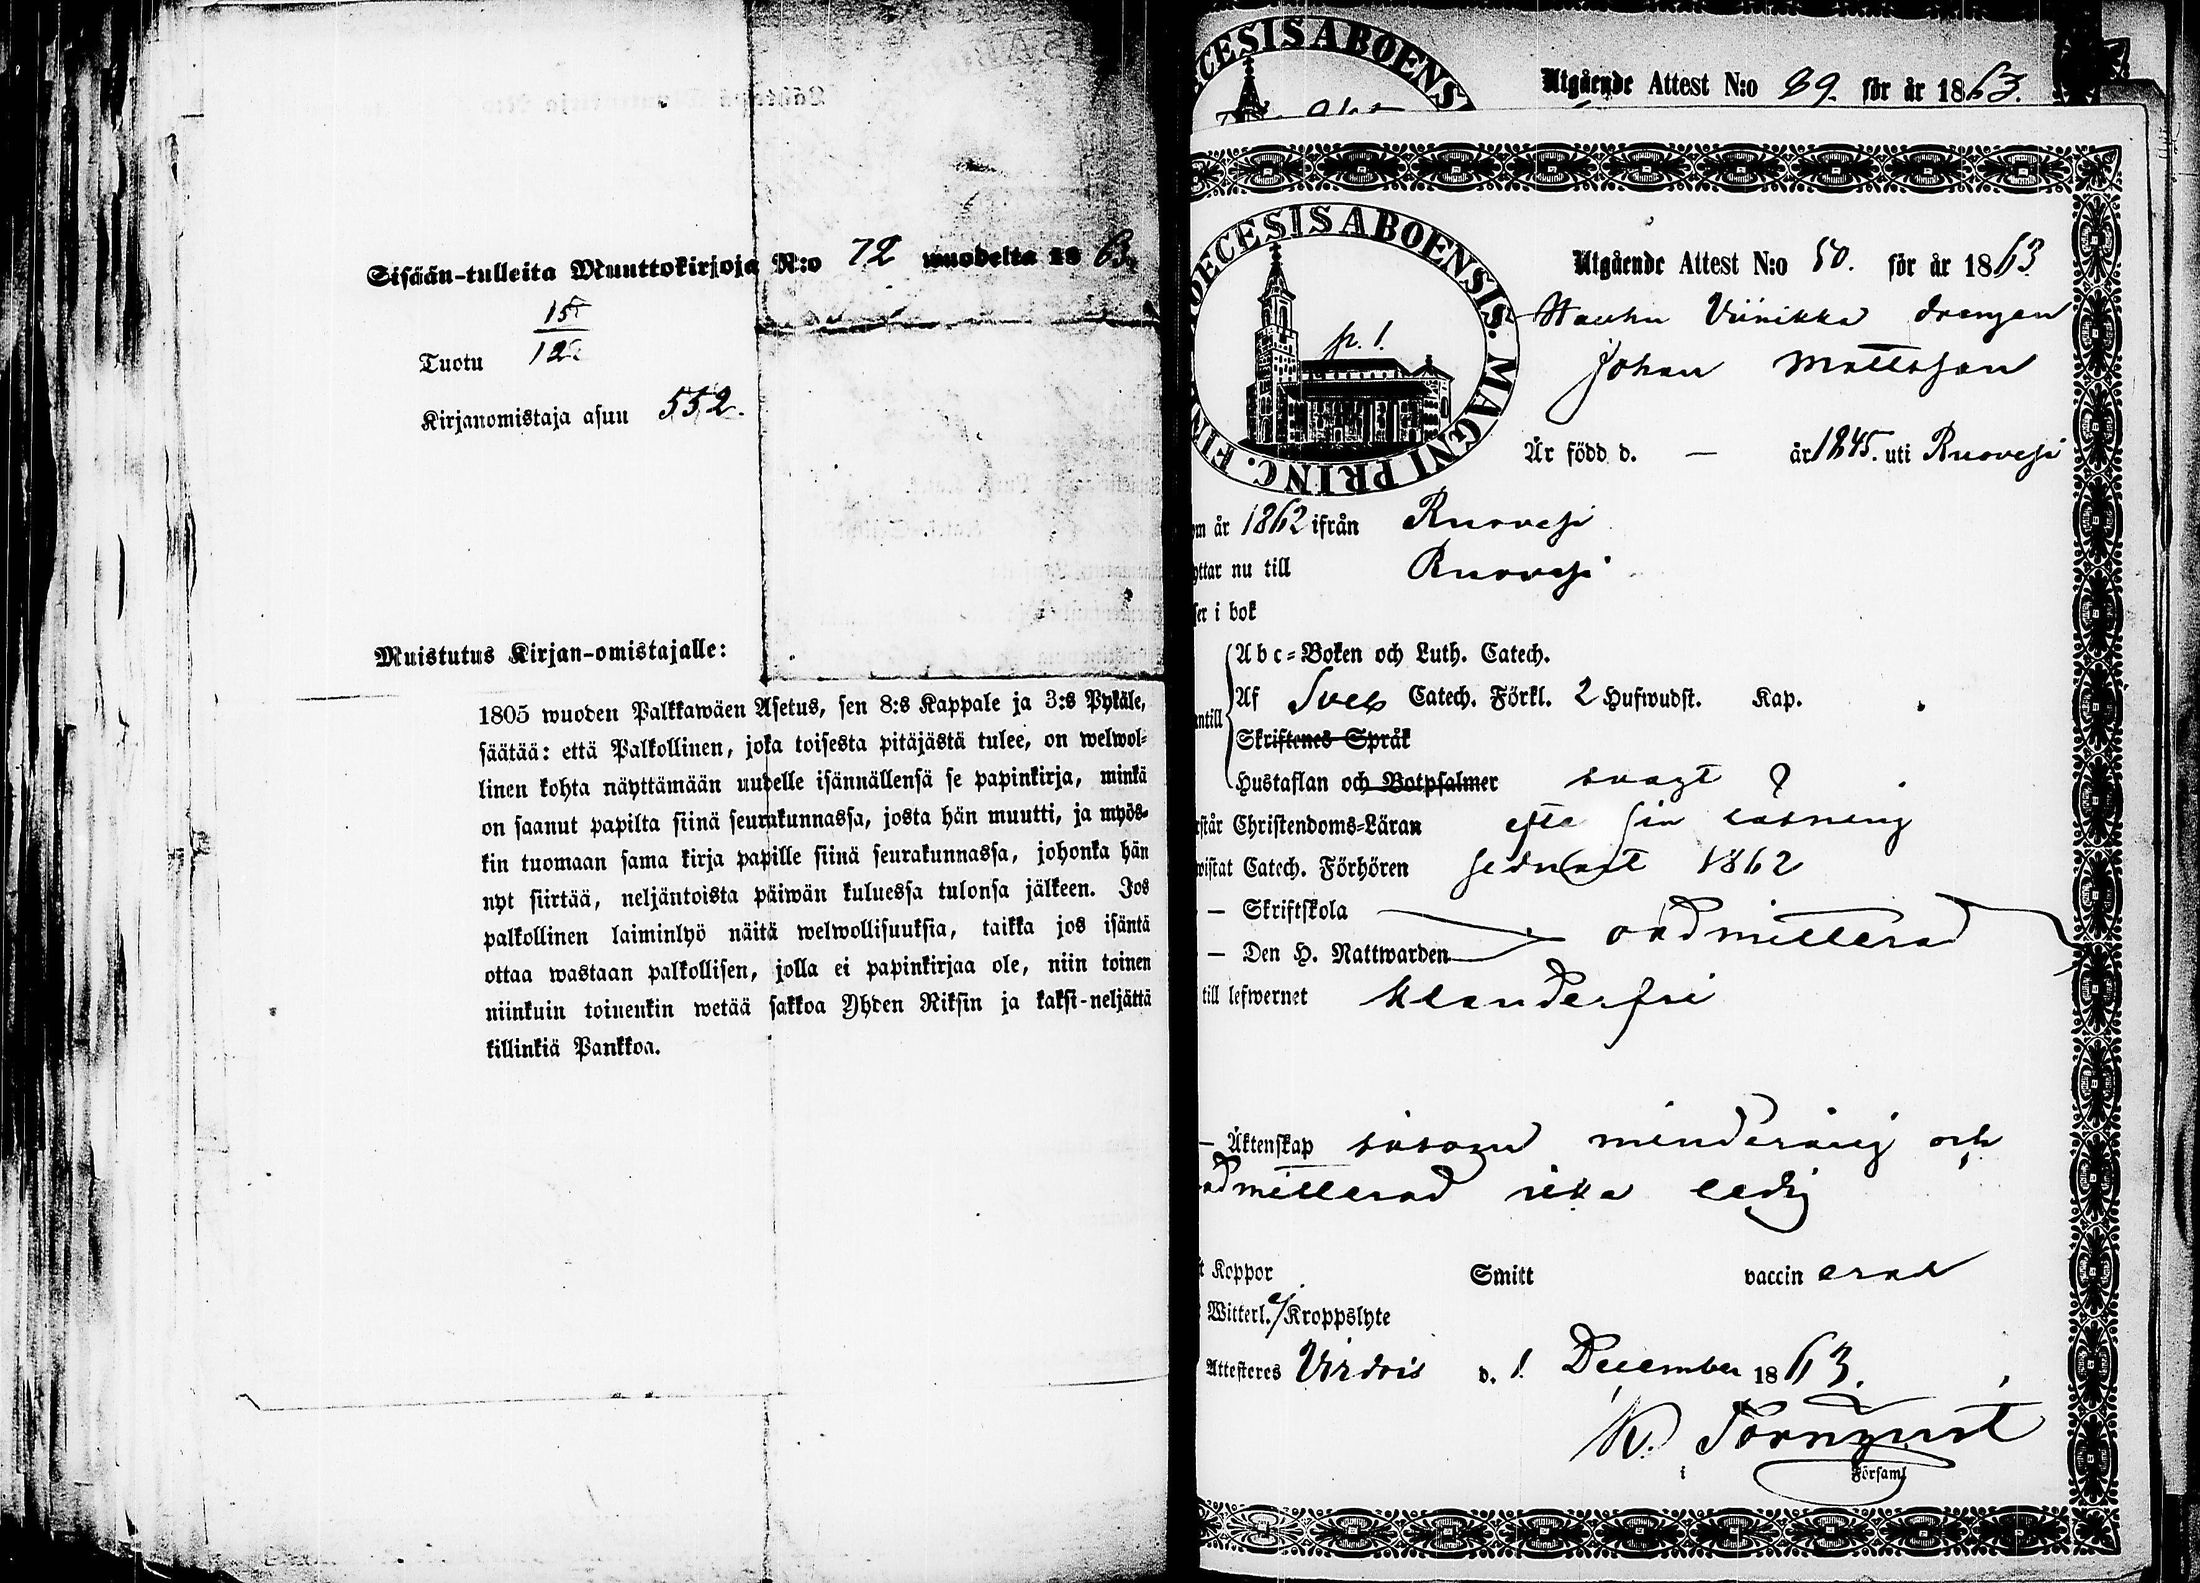 Sisään-tulleita Muuttokirjoja N:o 72 wuodelta 1863.
15
Tuotu 12
Kirjanomistaja asuu 552.
Muistutus Kirjan-omistajalle:
1805 wuoden Palkkawäen Asetus, sen 8:s Kappale ja 3:s Pykäle,
säätää: että Palkollinen, joka toisesta pitäjästä tulee, on welwol-
linen kohta näyttämään uudelle isännällensä se papinkirja, minkä
on saanut papilta siinä seurakunnassa, josta hän muutti, ja myös-
kin tuomaan sama kirja papille siinä seurakunnassa, johonka hän
nyt siirtää, neljäntoista päiwän kuluessa tulonsa jälkeen. Jos
palkollinen laiminlyö näitä welwollisuuksia, taikka jos isäntä
ottaa wastaan palkollisen, jolla ei papinkirjaa ole, niin toinen
niinkuin toinenkin wetää sakkoa Yhden Riksin ja kaksi-neljättä
killinkiä Pankkoa.
ECESIS ABOENS
Utgående Attest N:o 39. för år 1863.
OECESIS ABOENSIS. MAGNI PRINC. FIN
p. 1.
Utgående Attest N:o 50. för år 1863
Wiinikka drengen
Johan Mattsson
Är född d. — år 1845. uti Ruovesi
om år 1862 ifrån Ruovesi
yttar nu till Ruovesi
ser i bok
Abc-Boken och Luth. Catech.
Af Sveb Catech. Förkl. 2 Hufwudst. Kap.
antill
Skriftenes Språk
Hustaflan och Botpsalmer svagt
rstår Christendoms-Läran efter sin läsning
wistat Catech. Förhören sednast 1862
— Skriftskola
— Den H. Nattwarden oadmitterad
till lefwernet klanderfri
— Äktenskap såsom minderårig och
admitterad icke ledig
t Koppor Smitt vaccinerad
Witterl. Kroppslyte
Attesteres Virdois d. 1 December 1863.
K. Törnqvist
i Församl